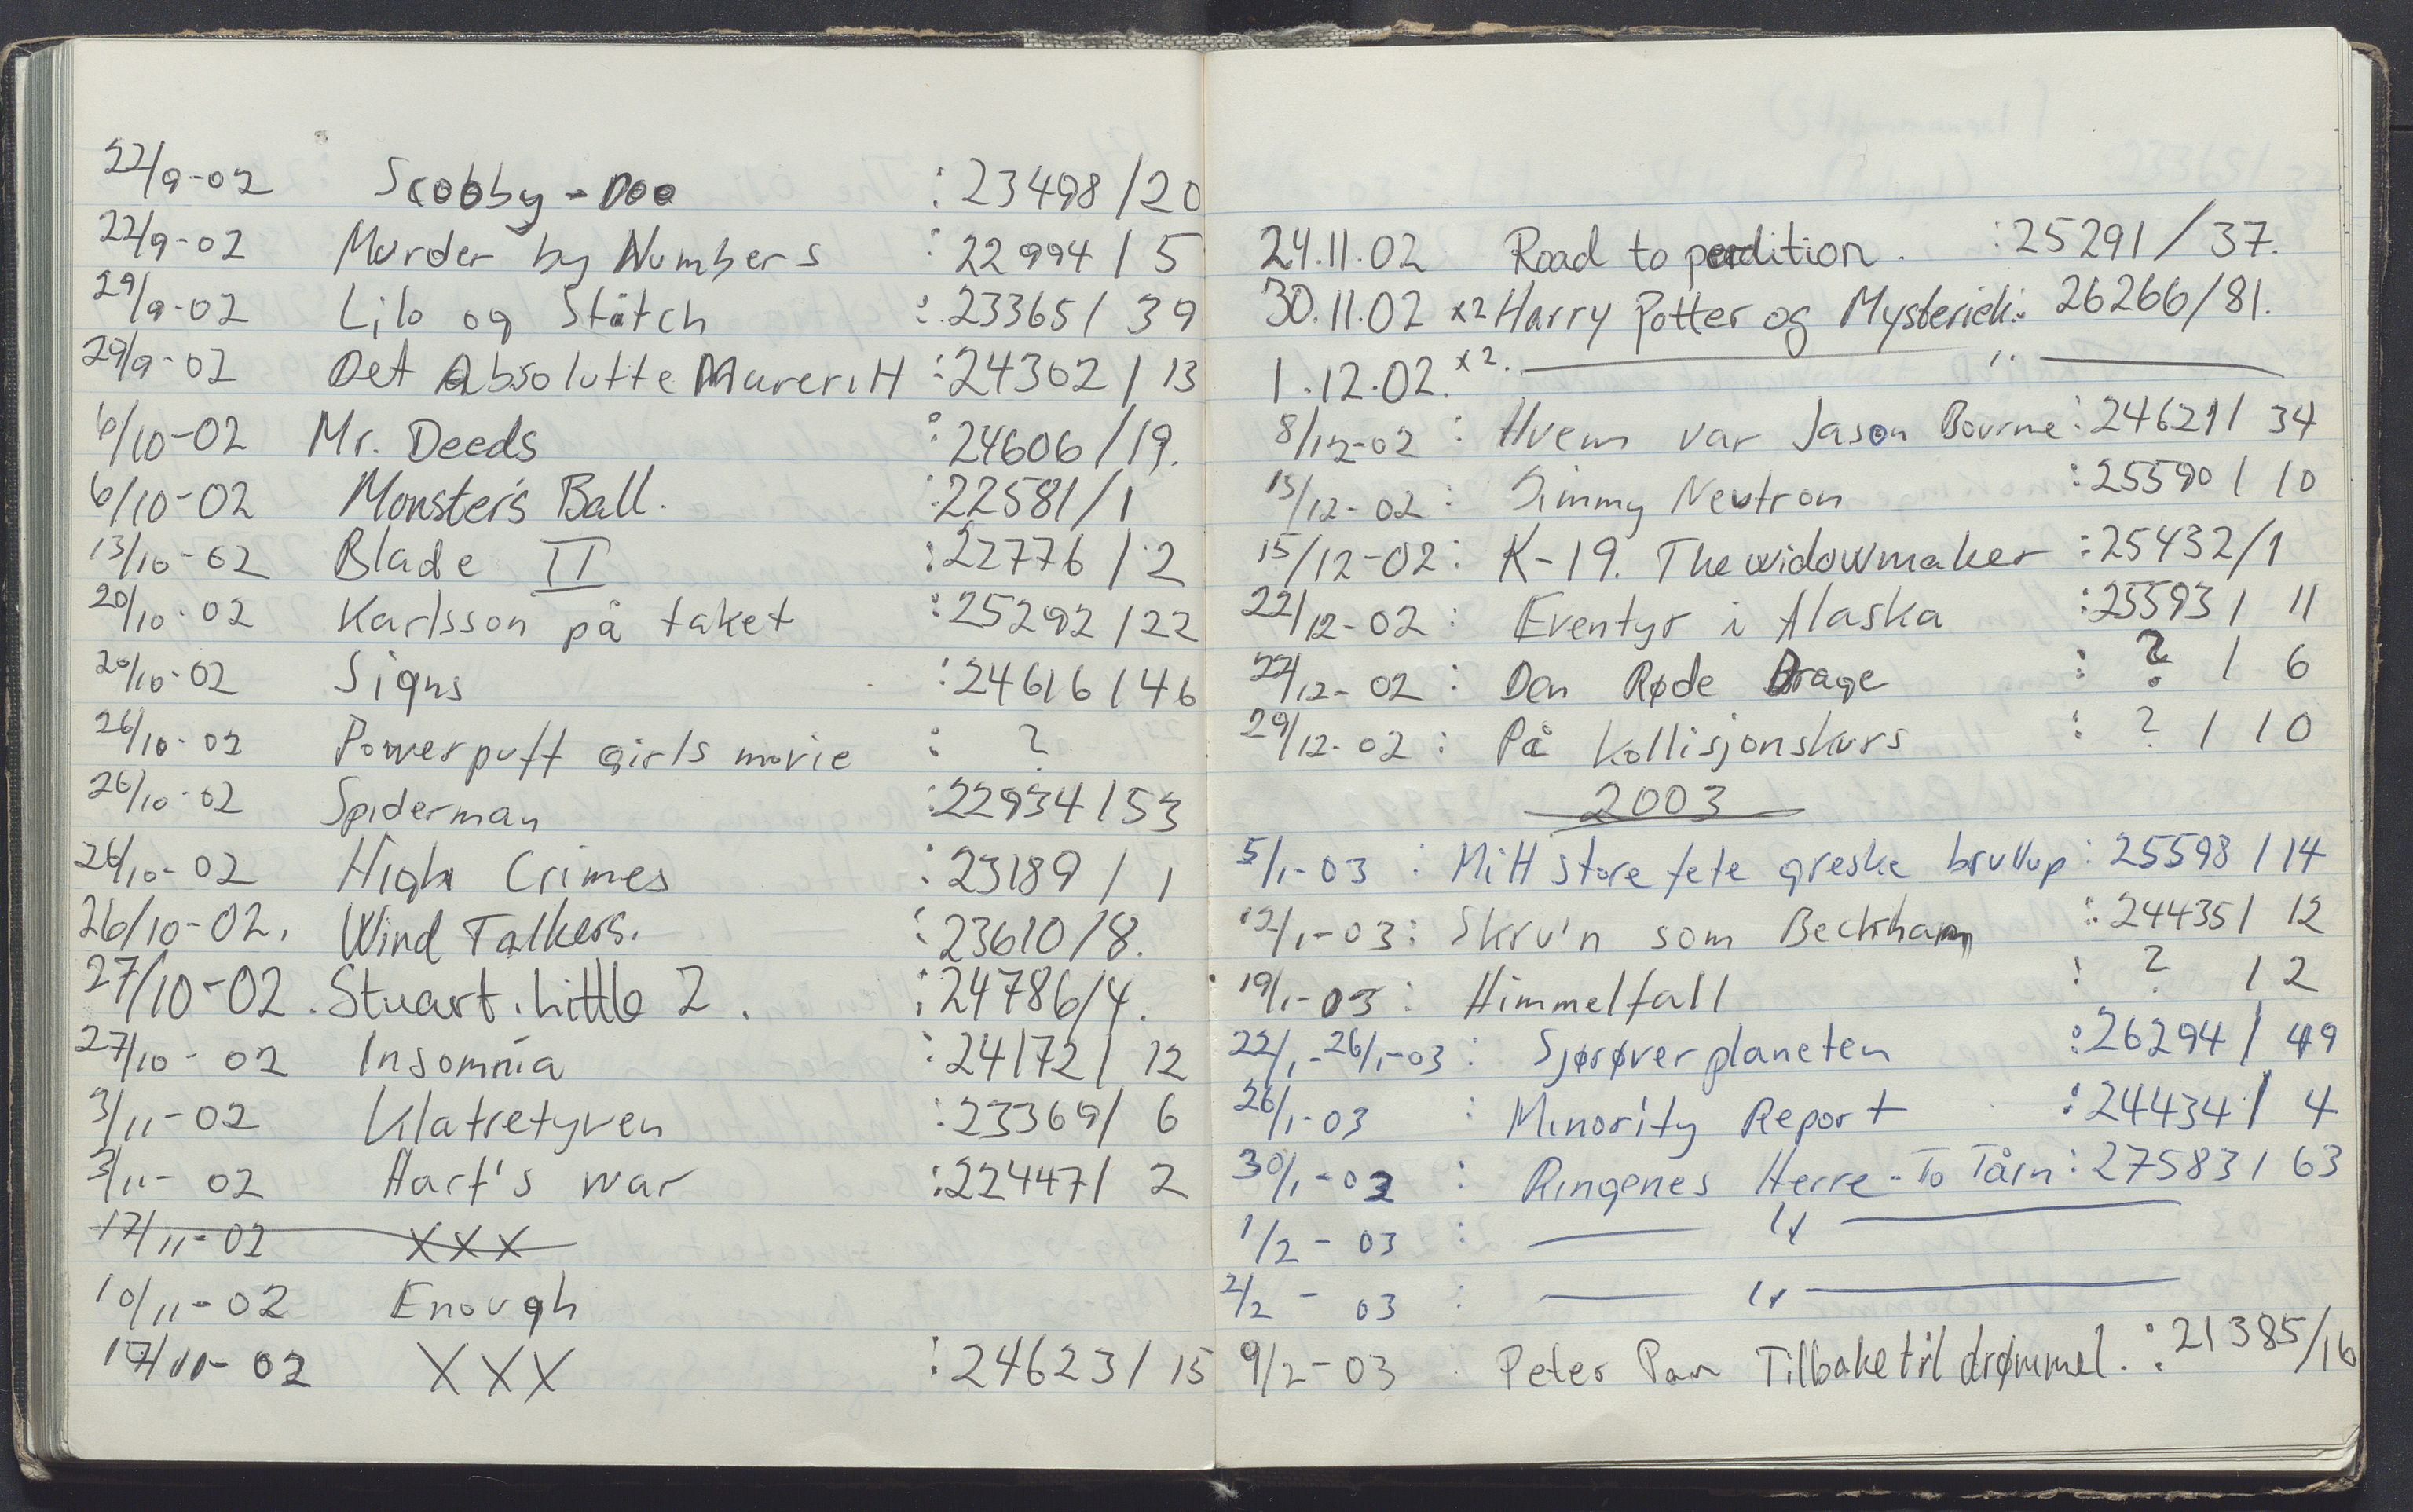 22/9-02 Scobby-Doo : 23498/20
22/9-02 Murder by Numbers : 22994/5
29/9-02 Lilo og Stitch : 23365/39
29/9-02 Det Absolutte Mareritt : 24302/13
6/10-02 Mr. Deeds : 24606/19.
6/10-02 Monster's Ball. : 22581/1
13/10-02 Blade II : 22776/2
20/10-02 Karlsson på taket : 25292/22
20/10-02 Signs : 24616/46
26/10-02 Powerpuff girls movie : ?
26/10-02 Spiderman : 22934/53
26/10-02 High Crimes : 23189/1
26/10-02. Wind Talkers. : 23610/8.
27/10-02. Stuart. Little 2. : 24786/4.
27/10-02 Insomnia : 24172/12
3/11-02 Klatretyven : 23369/6
3/11-02 Hart's war : 22447/2
17/11-02 XXX
10/11-02 Enough
17/11-02 XXX : 24623/15
24.11.02 Road to perdition. : 25291/37.
30.11.02 x2 Harry Potter og Mysteriek. : 26266/81.
1.12.02. x2. — '' —
8/12-02 : Hvem var Jason Bourne : 24621/34
15/12-02 : Jimmy Neutron : 25590/10
15/12-02 : K-19. The widowmaker : 25432/1
22/12-02 : Eventyr i Alaska : 25593/11
22/12-02 : Den Røde Drage : ?/6
29/12-02 : På kollisjonskurs : ?/10
2003
5/1-03 : Mitt store fete greske bryllup : 25598/14
12/1-03 : Skru'n som Beckham : 24435/12
19/1-03 : Himmelfall : ?/2
22/1-26/1-03 : Sjørøverplaneten : 26294/49
26/1-03 : Minority Report : 24434/4
30/1-03 : Ringenes Herre - To Tårn : 27583/63
1/2-03 : — '' —
2/2-03 : — '' —
9/2-03 Peter Pan Tilbake til drømmel. : 21385/16